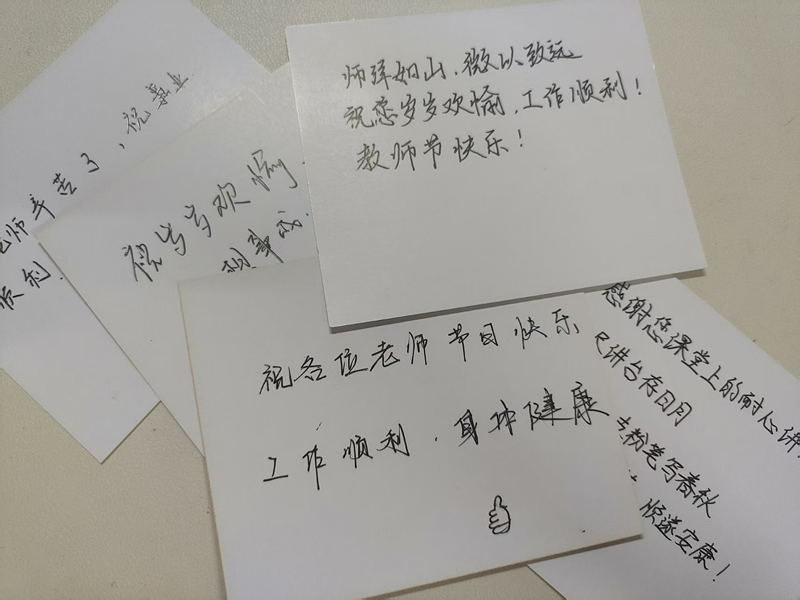 师泽如山，微以致远
祝您岁岁欢愉，工作顺利！
教师节快乐！
老师辛苦了，祝事业
顺利.
祝岁岁欢愉
祝各位老师节日快乐
工作顺利，身体健康
感谢您课堂上的耐心讲
尺讲台存日月
粉笔写春秋
顺遂安康！